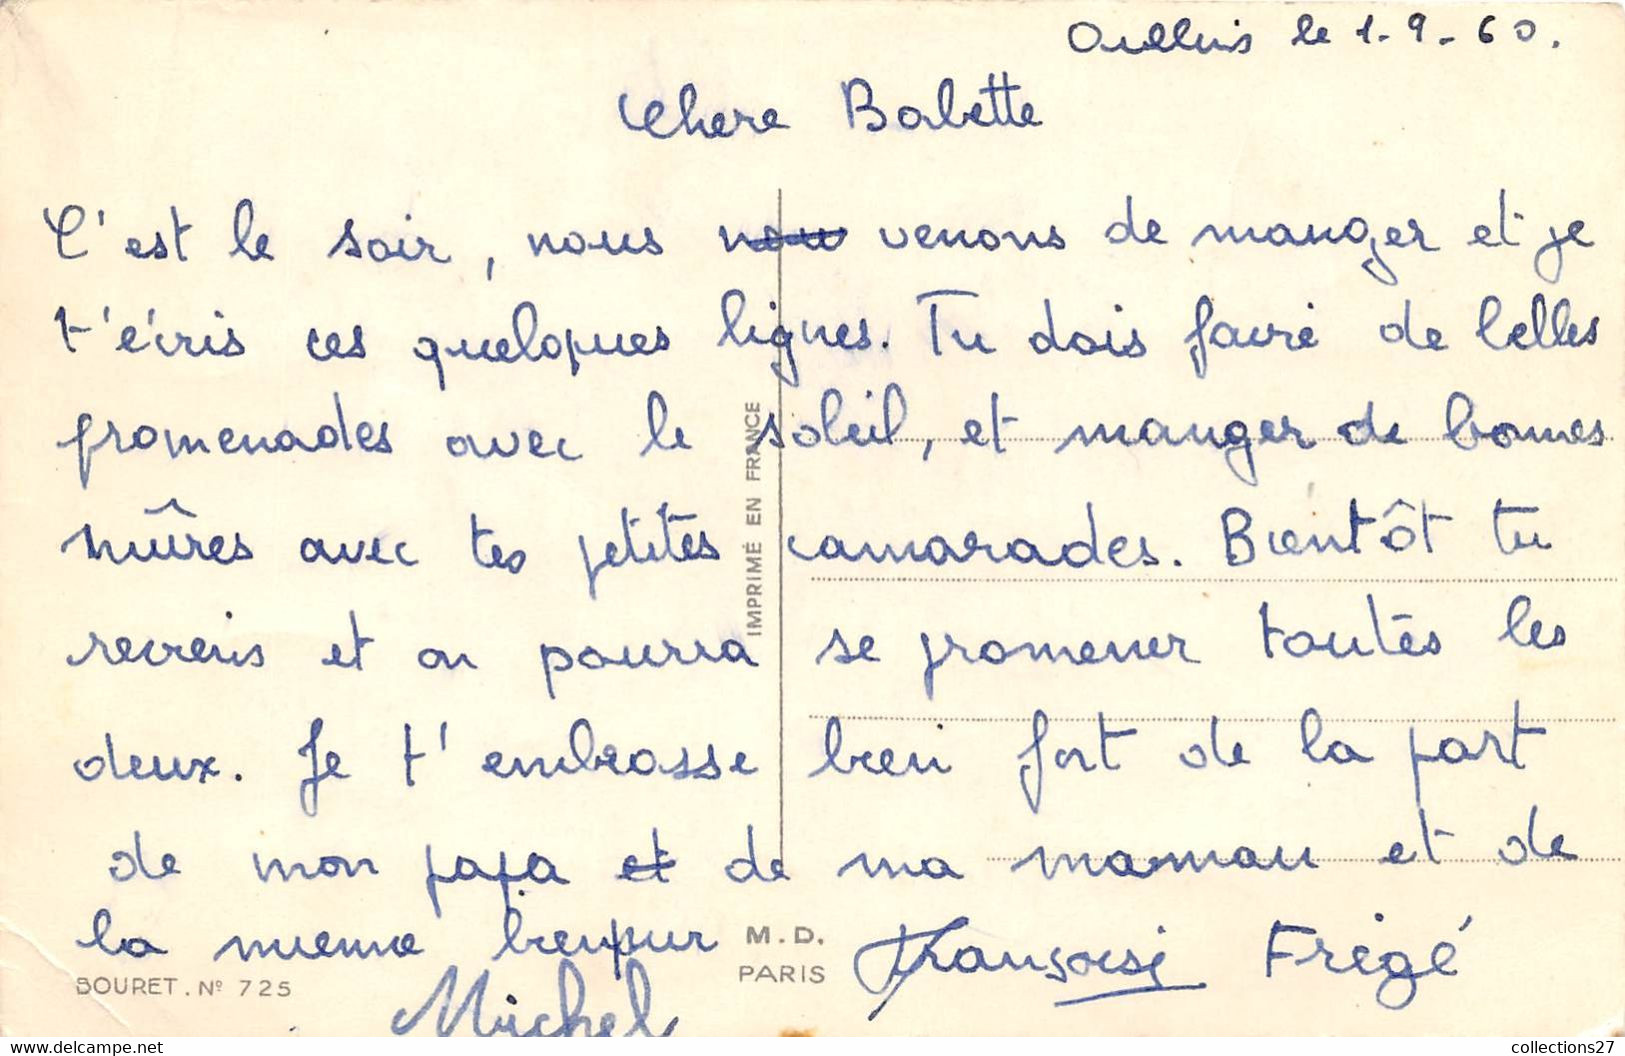 Oullins le 1-9-60.
Chere Babette
C'est le soir, nous nous venons de manger et je
t'écris ces quelques lignes. Tu dois faire de belles
promenades avec le soleil, et manger de bonnes
mûres avec tes petites camarades. Bientôt tu
reviens et on pourra se promener toutes les
deux. Je t'embrasse bien fort de la part
de mon papa et de ma maman et de
la mienne bien sur Françoise Frégé
Michel
IMPRIMÉ EN FRANCE
M. D.
PARIS
BOURET. Nº 725
collections27